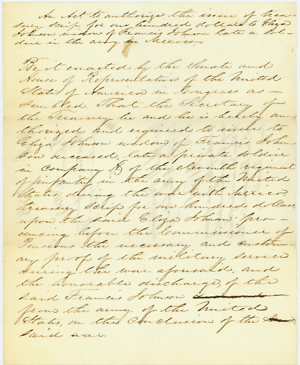 An Act to authorize the issue of Trea-
sury scrip for one hundred dollars to Eliza
Johnson widow of Francis Johnson late a Sol-
dier in the army in Mexico.
Be it enacted by the Senate and
House of Representatives of the United
States of America in Congress as-
sembled That the Secretary of
the Treasury be and he is hereby au-
thorized and required to issue to
Eliza Johnson widow of Francis John-
son deceased, late a private soldier
in Company of the eleventh regiment
of Infantry in the army of the United
States, during the war with Mexico
Treasury Scrip for one hundred dollars,
upon the said Eliza Johnson pro-
ducing before the Commissioner of
Pensions the necessary and custom-
ary proof of the military service
during the war aforesaid, and
the honorable discharge, of the
said Francis Johnson
from the army of the United
States, on the conclusion of the
said war.